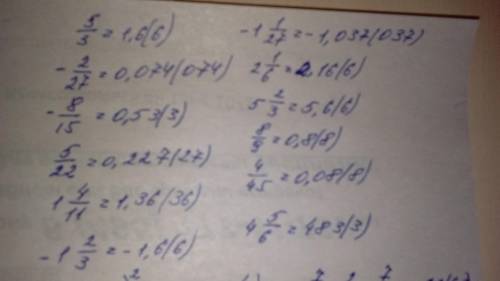 5/3 = 1,6(6)
- 2/27 = 0,074(074)
- 8/15 = 0,53(3)
5/22 = 0,227(27)
1 4/11 = 1,36(36)
-1 2/3 = -1,6(6)
-1 1/27 = -1,037(037)
2 1/6 = 2,16(6)
5 2/3 = 5,6(6)
8/9 = 0,8(8)
4/45 = 0,08(8)
4 5/6 = 483(3)